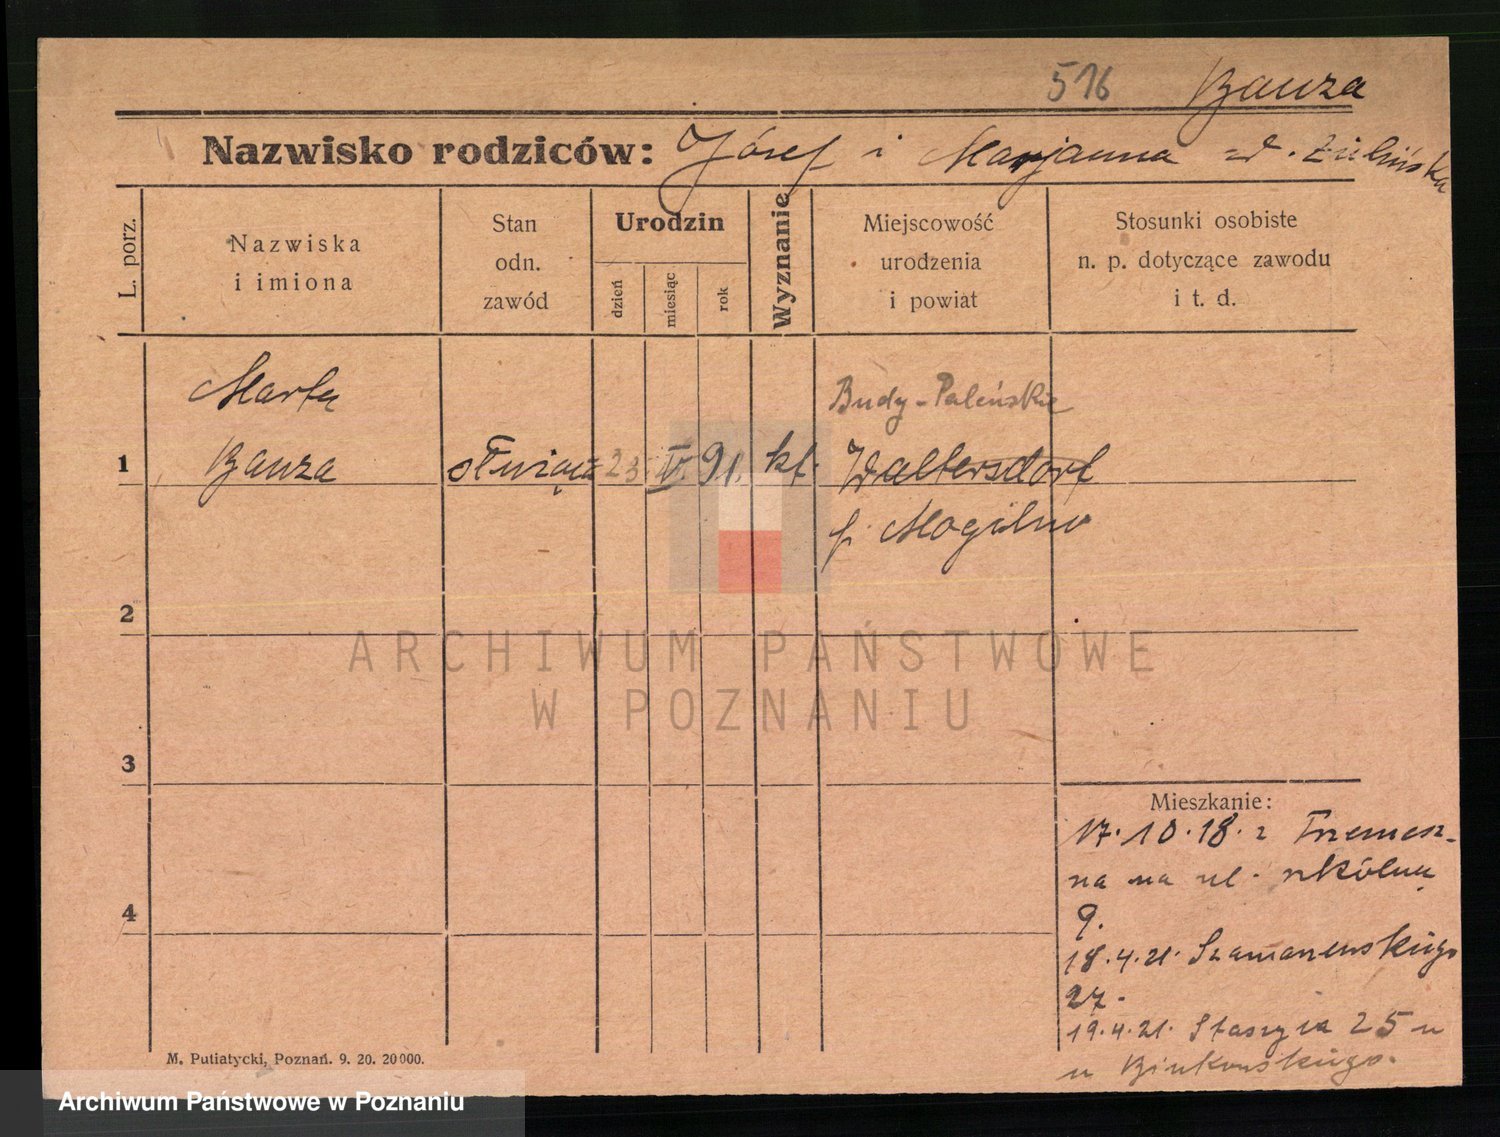 516 Bauza
Nazwisko rodziców: Józef i Marjanna zd. Żulińska
L. porz.
Nazwiska
i imiona
Stan
odn.
zawód
Urodzin
dzień
miesiąc
rok
Wyznanie
Miejscowość
urodzenia
i powiat
Stosunki osobiste
n. p. dotyczące zawodu
i t. d.
Marta
Budy-Paleńskie
1 Bauza służąca 23 IV. 91. kt. Waltersdorf
p. Mogilno
2
ARCHIWUM PAŃSTWOWE
W POZNANIU
3
Mieszkanie:
17.10.18. z Trzemesz-
na na ul. szkólną
4
9.
18.4.21. Szamarzewskiego
27.
19.4.21. Staszyca 25 u
u Binkowskiego.
M. Putiatycki, Poznań. 9. 20. 20000.
Archiwum Państwowe w Poznaniu